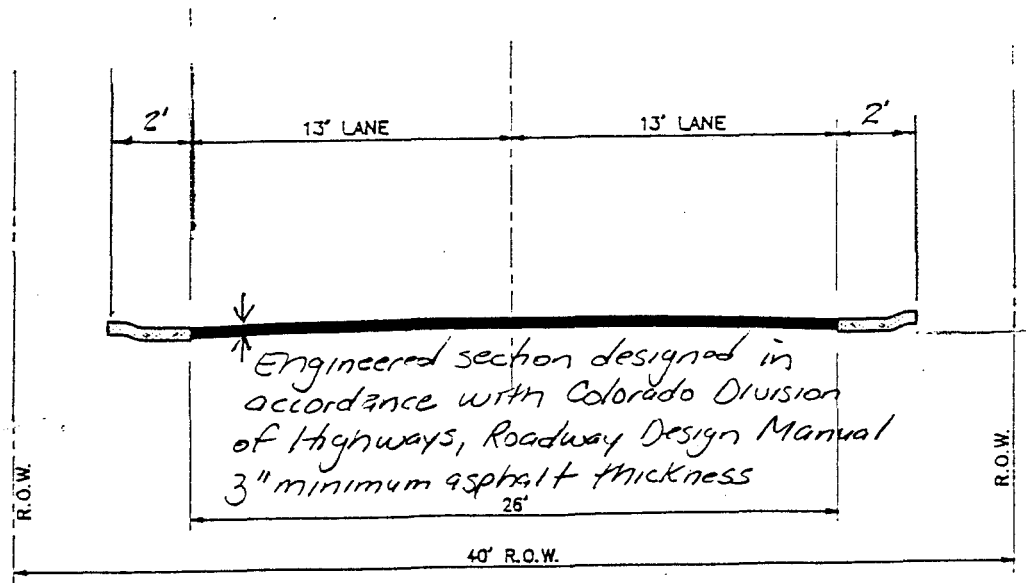 2'
13' LANE
13' LANE
2'
Engineered section designed in
accordance with Colorado Division
of Highways, Roadway Design Manual
3" minimum asphalt thickness
R.O.W.
R.O.W.
26'
40' R.O.W.